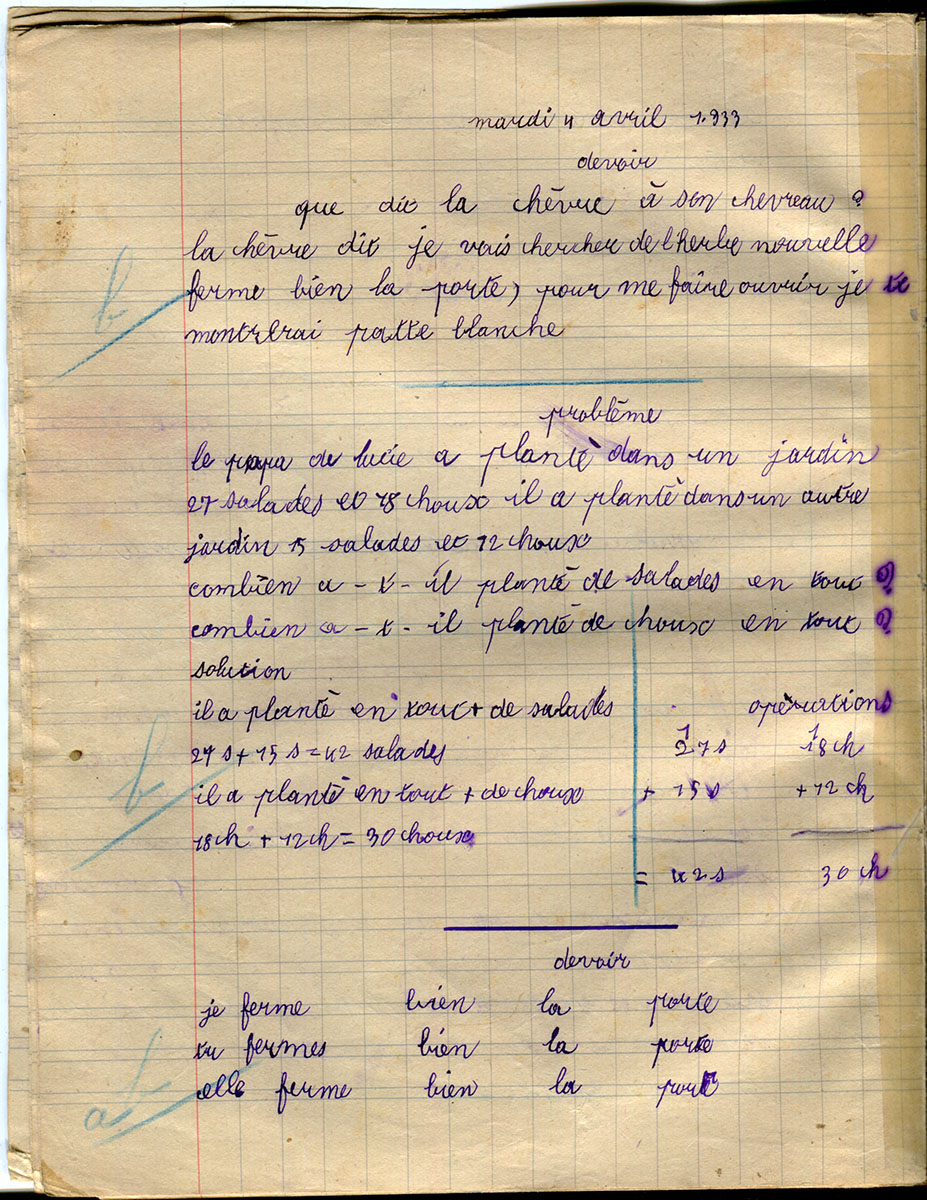 mardi 4 avril 1.933
devoir
que dit la chèvre à son chevreau ?
la chèvre dit je vais chercher de l'herbe nouvelle
ferme bien la porte, pour me faire ouvrir je te
montrerai patte blanche
problème
le papa de lucie a planté dans un jardin
27 salades et 18 choux il a planté dans un autre
jardin 15 salades et 12 choux
combien a - t - il planté de salades en tout ?
combien a - t - il planté de choux en tout ?
solution
il a planté en tout + de salades
opérations
27 s + 15 s = 42 salades
1 1
27 s 18 ch
il a planté en tout + de choux
+ 15 s + 12 ch
18 ch + 12 ch = 30 choux
= 42 s 30 ch
devoir
je ferme bien la porte
tu fermes bien la porte
elle ferme bien la porte
b
b
ab